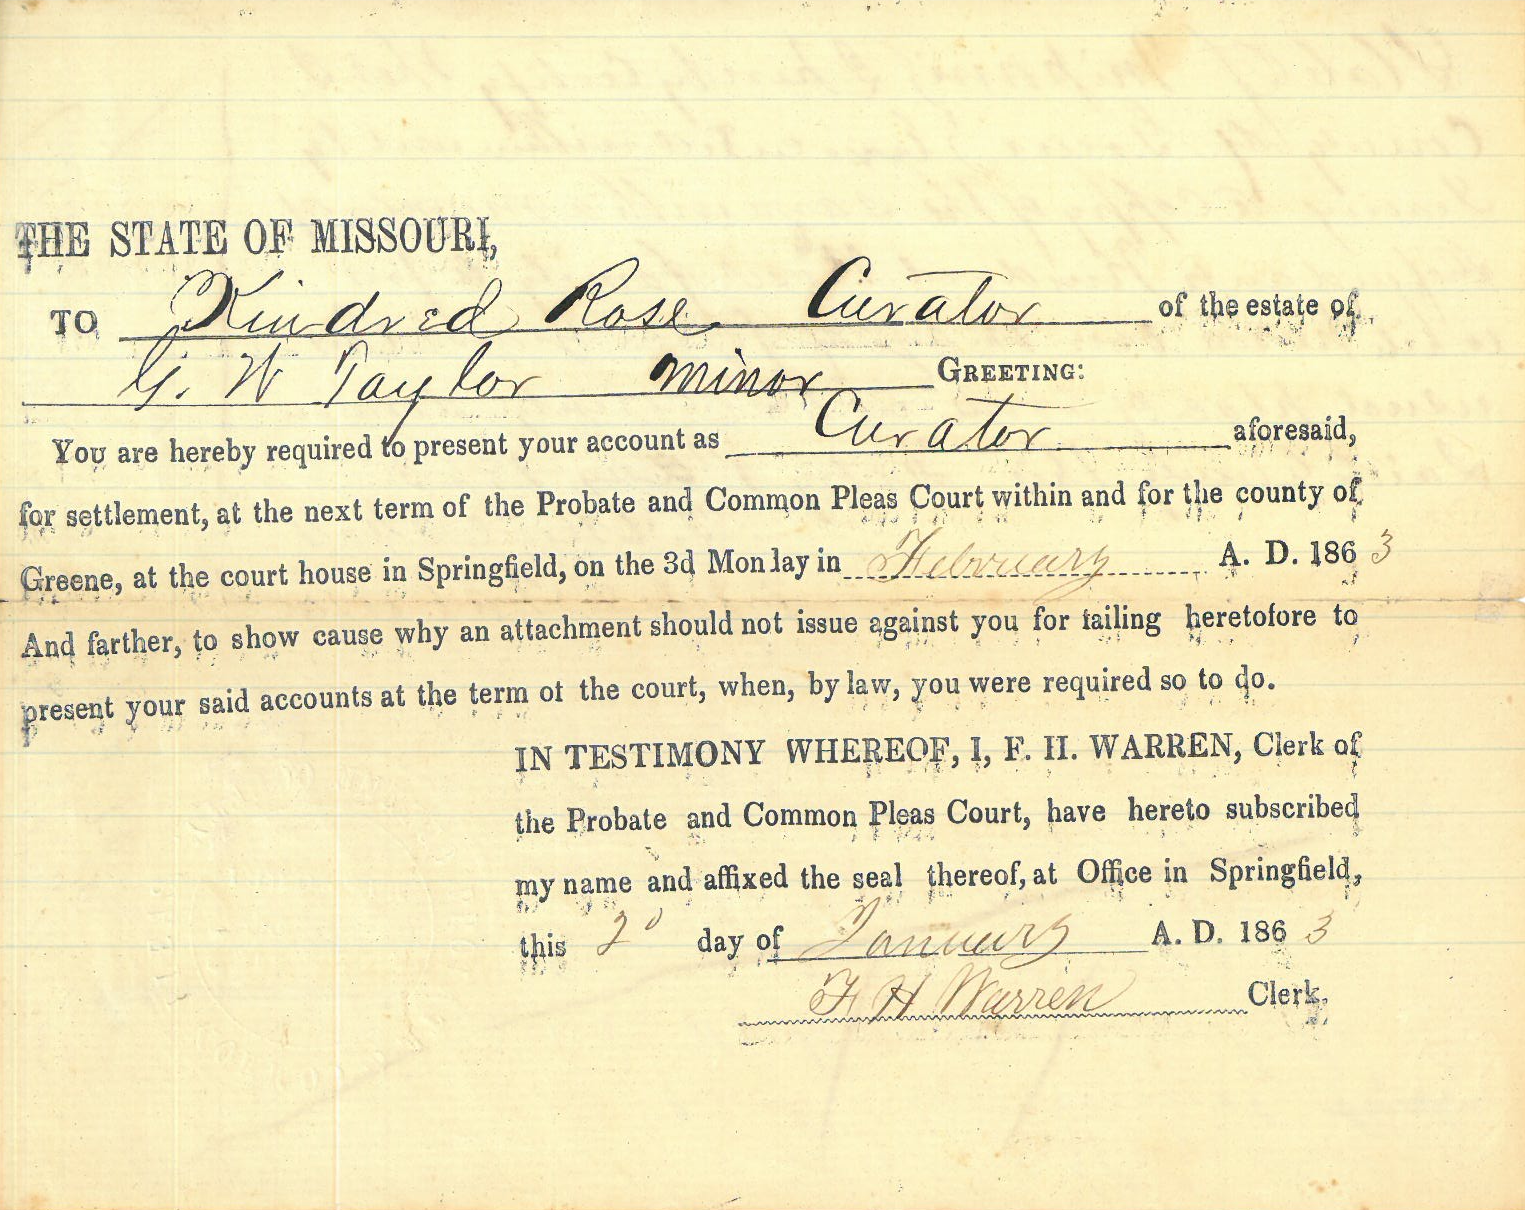 THE STATE OF MISSOURI,
TO Kindred Rose Curator of the estate of
G. W Taylor minor GREETING:
You are hereby required to present your account as Curator aforesaid,
for settlement, at the next term of the Probate and Common Pleas Court within and for the county of
Greene, at the court house in Springfield, on the 3d Monday in February A. D. 1863
And farther, to show cause why an attachment should not issue against you for failing heretofore to
present your said accounts at the term of the court, when, by law, you were required so to do.
IN TESTIMONY WHEREOF, I, F. H. WARREN, Clerk of
the Probate and Common Pleas Court, have hereto subscribed
my name and affixed the seal thereof, at Office in Springfield,
this day of January A. D. 1863
F H Warren Clerk.